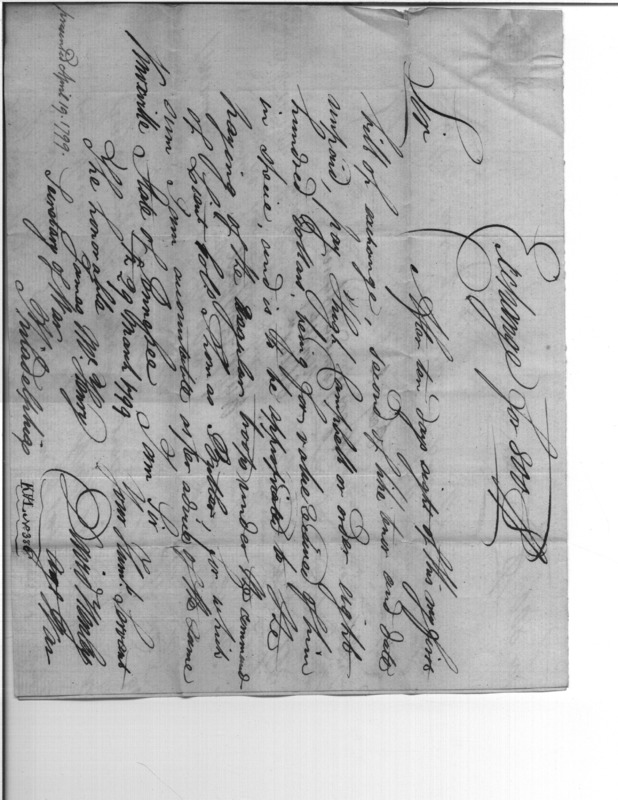 Exchange for 800 D
Sir
After ten days sight of this my first
bill of exchange, second of like tenor and date
unpaid, pay Hugh Campbell or order eight
hundred Dollars, being for value received of him
in specie, and is to be appropriated to the
paying of the regular troops under the command
of Lieut Colo Thomas Butler; for which
sum I am accountable as per advice of the same
Knoxville State of Tennessee
I am Sir
29 March 1799
your Humb Servant
David Henley
Agt War
The honorable
James McHenry
Secretary of War
Philadelphia
presented April 19. 1799.